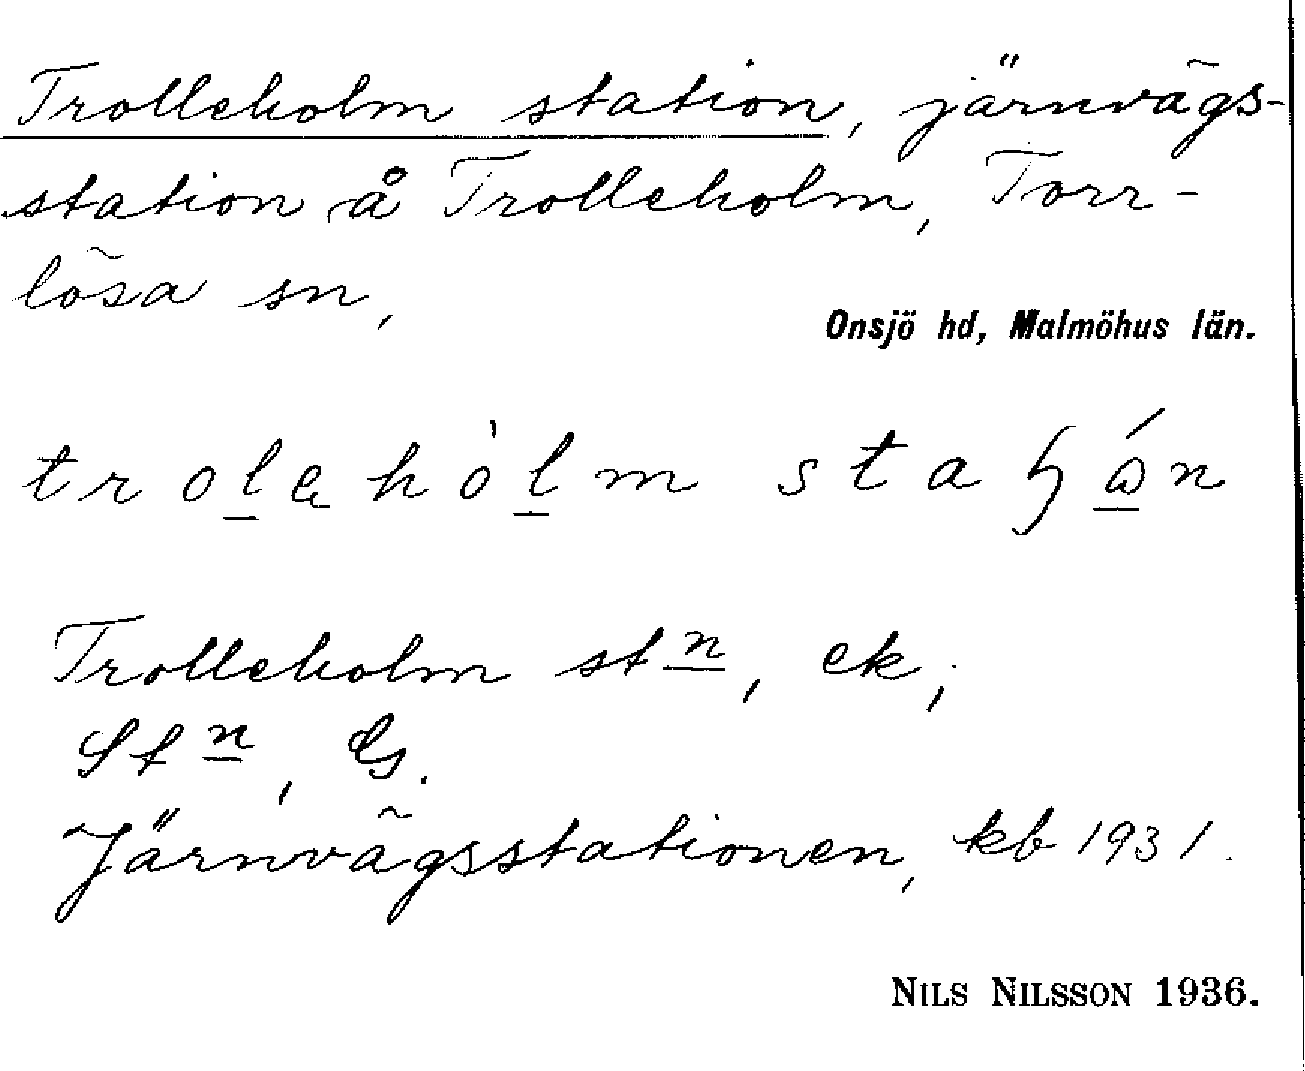 Trolleholm station, järnvägs-
station å Trolleholm, Torr-
lösa sn,
Onsjö hd, Malmöhus län.
Trolleholm stn, ek,
Stn, Gs.
Järnvägsstationen, kb 1931.
NILS NILSSON 1936.